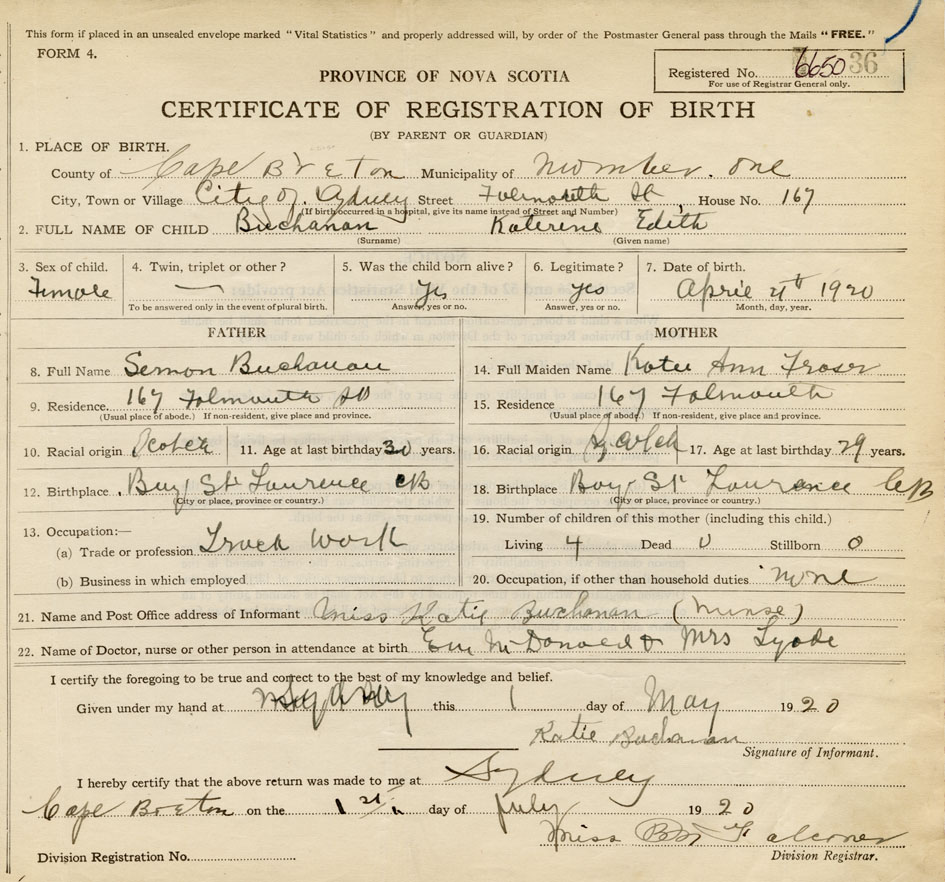 This form if placed in an unsealed envelope marked "Vital Statistics" and properly addressed will, by order of the Postmaster General pass through the Mails "FREE."
FORM 4.
Registered No. 6650 36
For use of Registrar General only.
PROVINCE OF NOVA SCOTIA
CERTIFICATE OF REGISTRATION OF BIRTH
(BY PARENT OR GUARDIAN)
1. PLACE OF BIRTH.
County of Cape Breton Municipality of Number. One
City, Town or Village City of Sydney Street Falmouth St, House No. 167
(If birth occurred in a hospital, give its name instead of Street and Number)
2. FULL NAME OF CHILD Buchanan Katerine Edith
(Surname) (Given name)
3. Sex of child. 4. Twin, triplet or other? 5. Was the child born alive? 6. Legitimate? 7. Date of birth.
Female — Yes yes April 1920
To be answered only in the event of plural birth. Answer, yes or no. Answer, yes or no. Month, day, year.
FATHER MOTHER
8. Full Name Semon Buchanan 14. Full Maiden Name Katie Ann Fraser
9. Residence. 167 Falmouth St 15. Residence 167 Falmouth
(Usual place of abode.) If non-resident, give place and province. (Usual place of abode.) If non-resident, give place and province.
10. Racial origin Scotch 11. Age at last birthday 30 years. 16. Racial origin Scotch 17. Age at last birthday 29 years.
12. Birthplace. Bay St Laurence CB 18. Birthplace Bay St Laurance CB
(City or place, province or country.) (City or place, province or country.)
13. Occupation:— 19. Number of children of this mother (including this child.)
(a) Trade or profession Track Work Living 4 Dead 0 Stillborn 0
(b) Business in which employed 20. Occupation, if other than household duties none
21. Name and Post Office address of Informant Miss Katie Buchanan (Nurse)
22. Name of Doctor, nurse or other person in attendance at birth McDonald & Mrs
I certify the foregoing to be true and correct to the best of my knowledge and belief.
Given under my hand at Sydney this 1 day of May 1920
Katie Buchanan
Signature of Informant.
I hereby certify that the above return was made to me at Sydney
Cape Breton on the 1st day of July 1920
Miss Falconer
Division Registration No. Division Registrar.